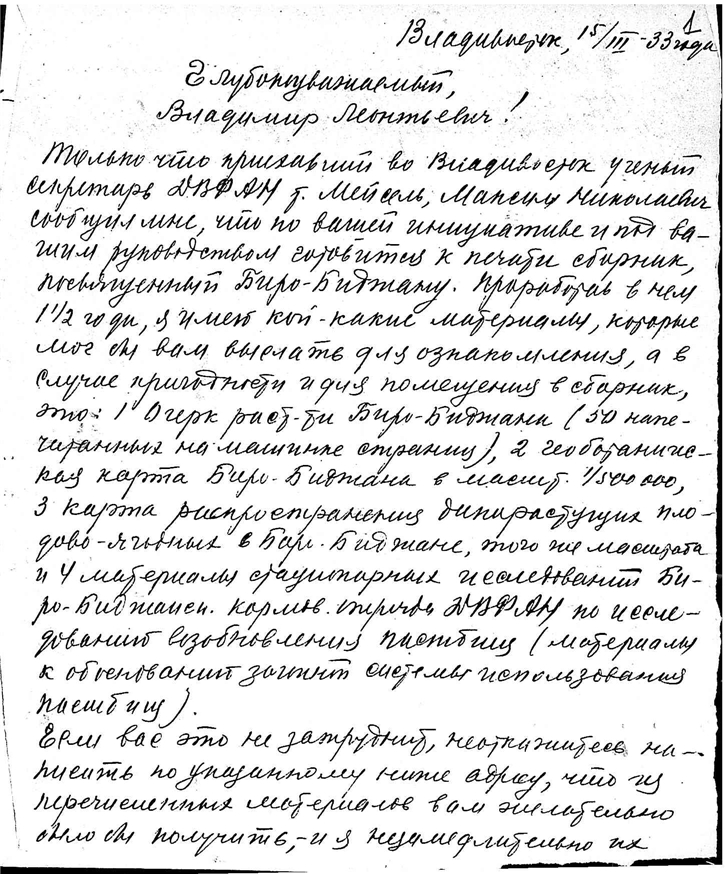 1
Владивосток, 15/III-33 года
Глубокоуважаемый,
Владимир Леонтьевич!
Только что приехавший во Владивосток ученый
секретарь ДВФАН т. Мейсель, Максим Николаевич
сообщил мне, что по вашей инициативе и под ва-
шим руководством готовится к печати сборник,
посвященный Биро-Биджану. Проработав в нем
1 1/2 года, я имею кой-какие материалы, которые
мог бы вам выслать для ознакомления, а в
случае пригодности и для помещения в сборник,
это: 1 Очерк раст-ти Биро-Биджана (50 напе-
чатанных на машинке страниц), 2 геоботаничес-
кая карта Биро-Биджана в масшт. 1/500 000,
3 карта распространения дикорастущих пло-
дово-ягодных в Биро-Биджане, того же масштаба
и 4 материалы стационарных исследований Би-
ро-Биджанск. кормов. отряда ДВФАН по иссле-
дованию возобновления пастбищ (материалы
к обоснованию загонной системы использования
пастбищ).
Если вас это не затруднит, неоткажитесь на-
писать по указанному ниже адресу, что из
перечисленных материалов вам желательно
было бы получить,-и я незамедлительно их